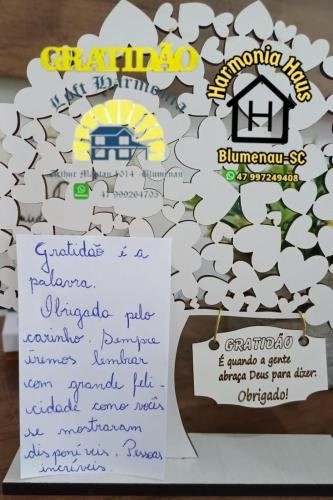 GRATIDÃO
Loft Harmonia
47 999264703
Harmonia Haus
H
Blumenau-SC
47 997249408
Gratidão é a
palavra.
Obrigada pelo
carinho. Sempre
iremos lembrar
com grande feli-
cidade como vocês
se mostraram
disponíveis. Pessoas
incríveis.
GRATIDÃO
É quando a gente
abraça Deus para dizer:
Obrigado!